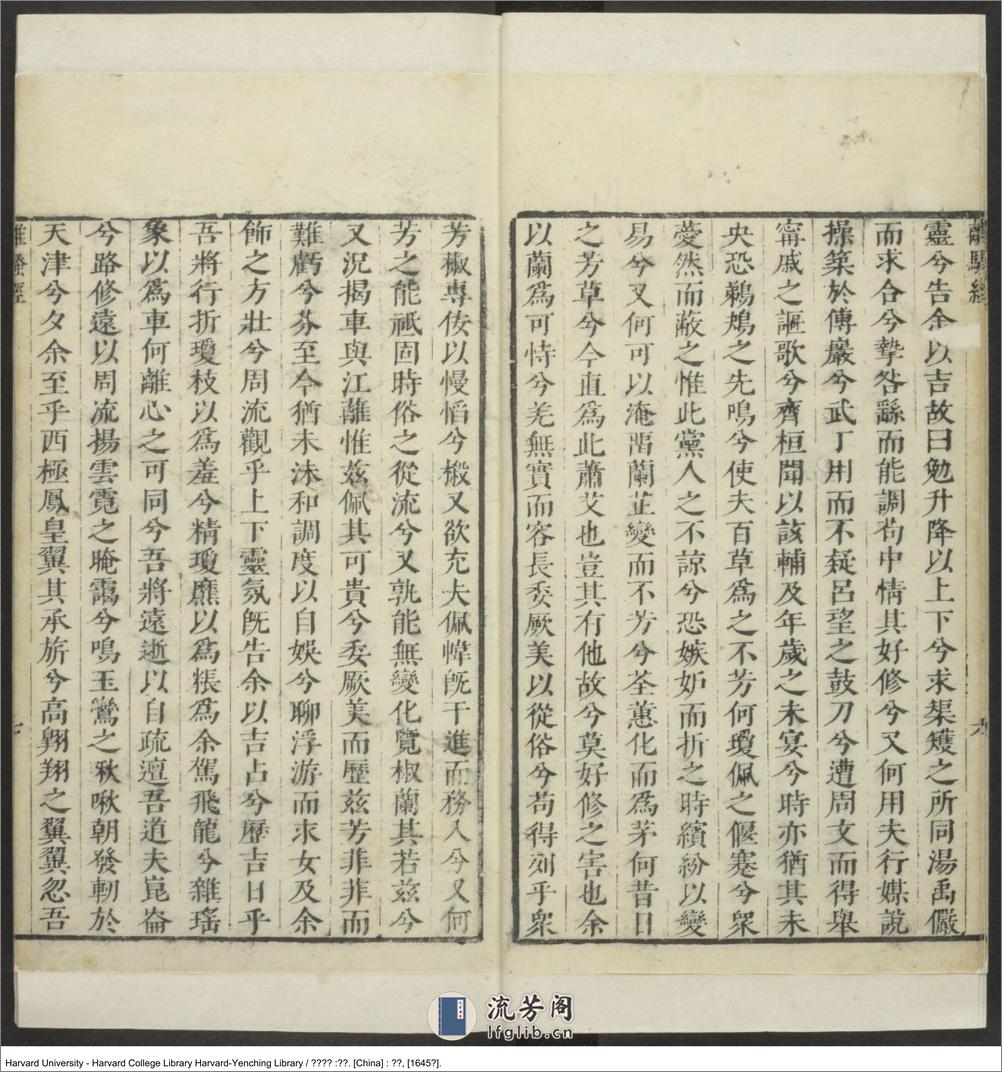 離騷經
九
靈兮告余以吉故曰勉升降以上下兮求榘矱之所同湯禹儼
而求合兮摯咎繇而能調茍中情其好修兮又何用夫行媒說
操築於傅巖兮武丁用而不疑呂望之鼓刀兮遭周文而得舉
甯戚之謳歌兮齊桓聞以該輔及年歲之未宴兮時亦猶其未
央恐鵜鴂之先鳴兮使夫百草為之不芳何瓊佩之偃蹇兮衆
薆然而蔽之惟此黨人之不諒兮恐嫉妒而折之時繽紛以變
易兮又何可以淹畱蘭芷變而不芳兮荃蕙化而為茅何昔日
之芳草兮今直為此蕭艾也豈其有他故兮莫好修之害也余
以蘭為可恃兮羌無實而容長委厥美以從俗兮茍得列乎衆
芳椒專佞以慢慆兮樧又欲充夫佩幃旣干進而務入兮又何
芳之能祇固時俗之從流兮又孰能無變化覽椒蘭其若茲兮
又況揭車與江蘺惟茲佩其可貴兮委厥美而歷茲芳菲菲而
難虧兮芬至今猶未沬和調度以自娛兮聊浮游而求女及余
飾之方壯兮周流觀乎上下靈氛旣告余以吉占兮歷吉日乎
吾將行折瓊枝以為羞兮精瓊爢以為粻為余駕飛龍兮雜瑤
象以為車何離心之可同兮吾將遠逝以自疏邅吾道夫崑崙
兮路修遠以周流揚雲霓之晻靄兮鳴玉鸞之啾啾朝發軔於
天津兮夕余至乎西極鳳皇翼其承旂兮高翺翔之翼翼忽吾
離騷經
流芳阁
lfglib.cn
Harvard University - Harvard College Library Harvard-Yenching Library / ???? :??. [China] : ??, [1645?].